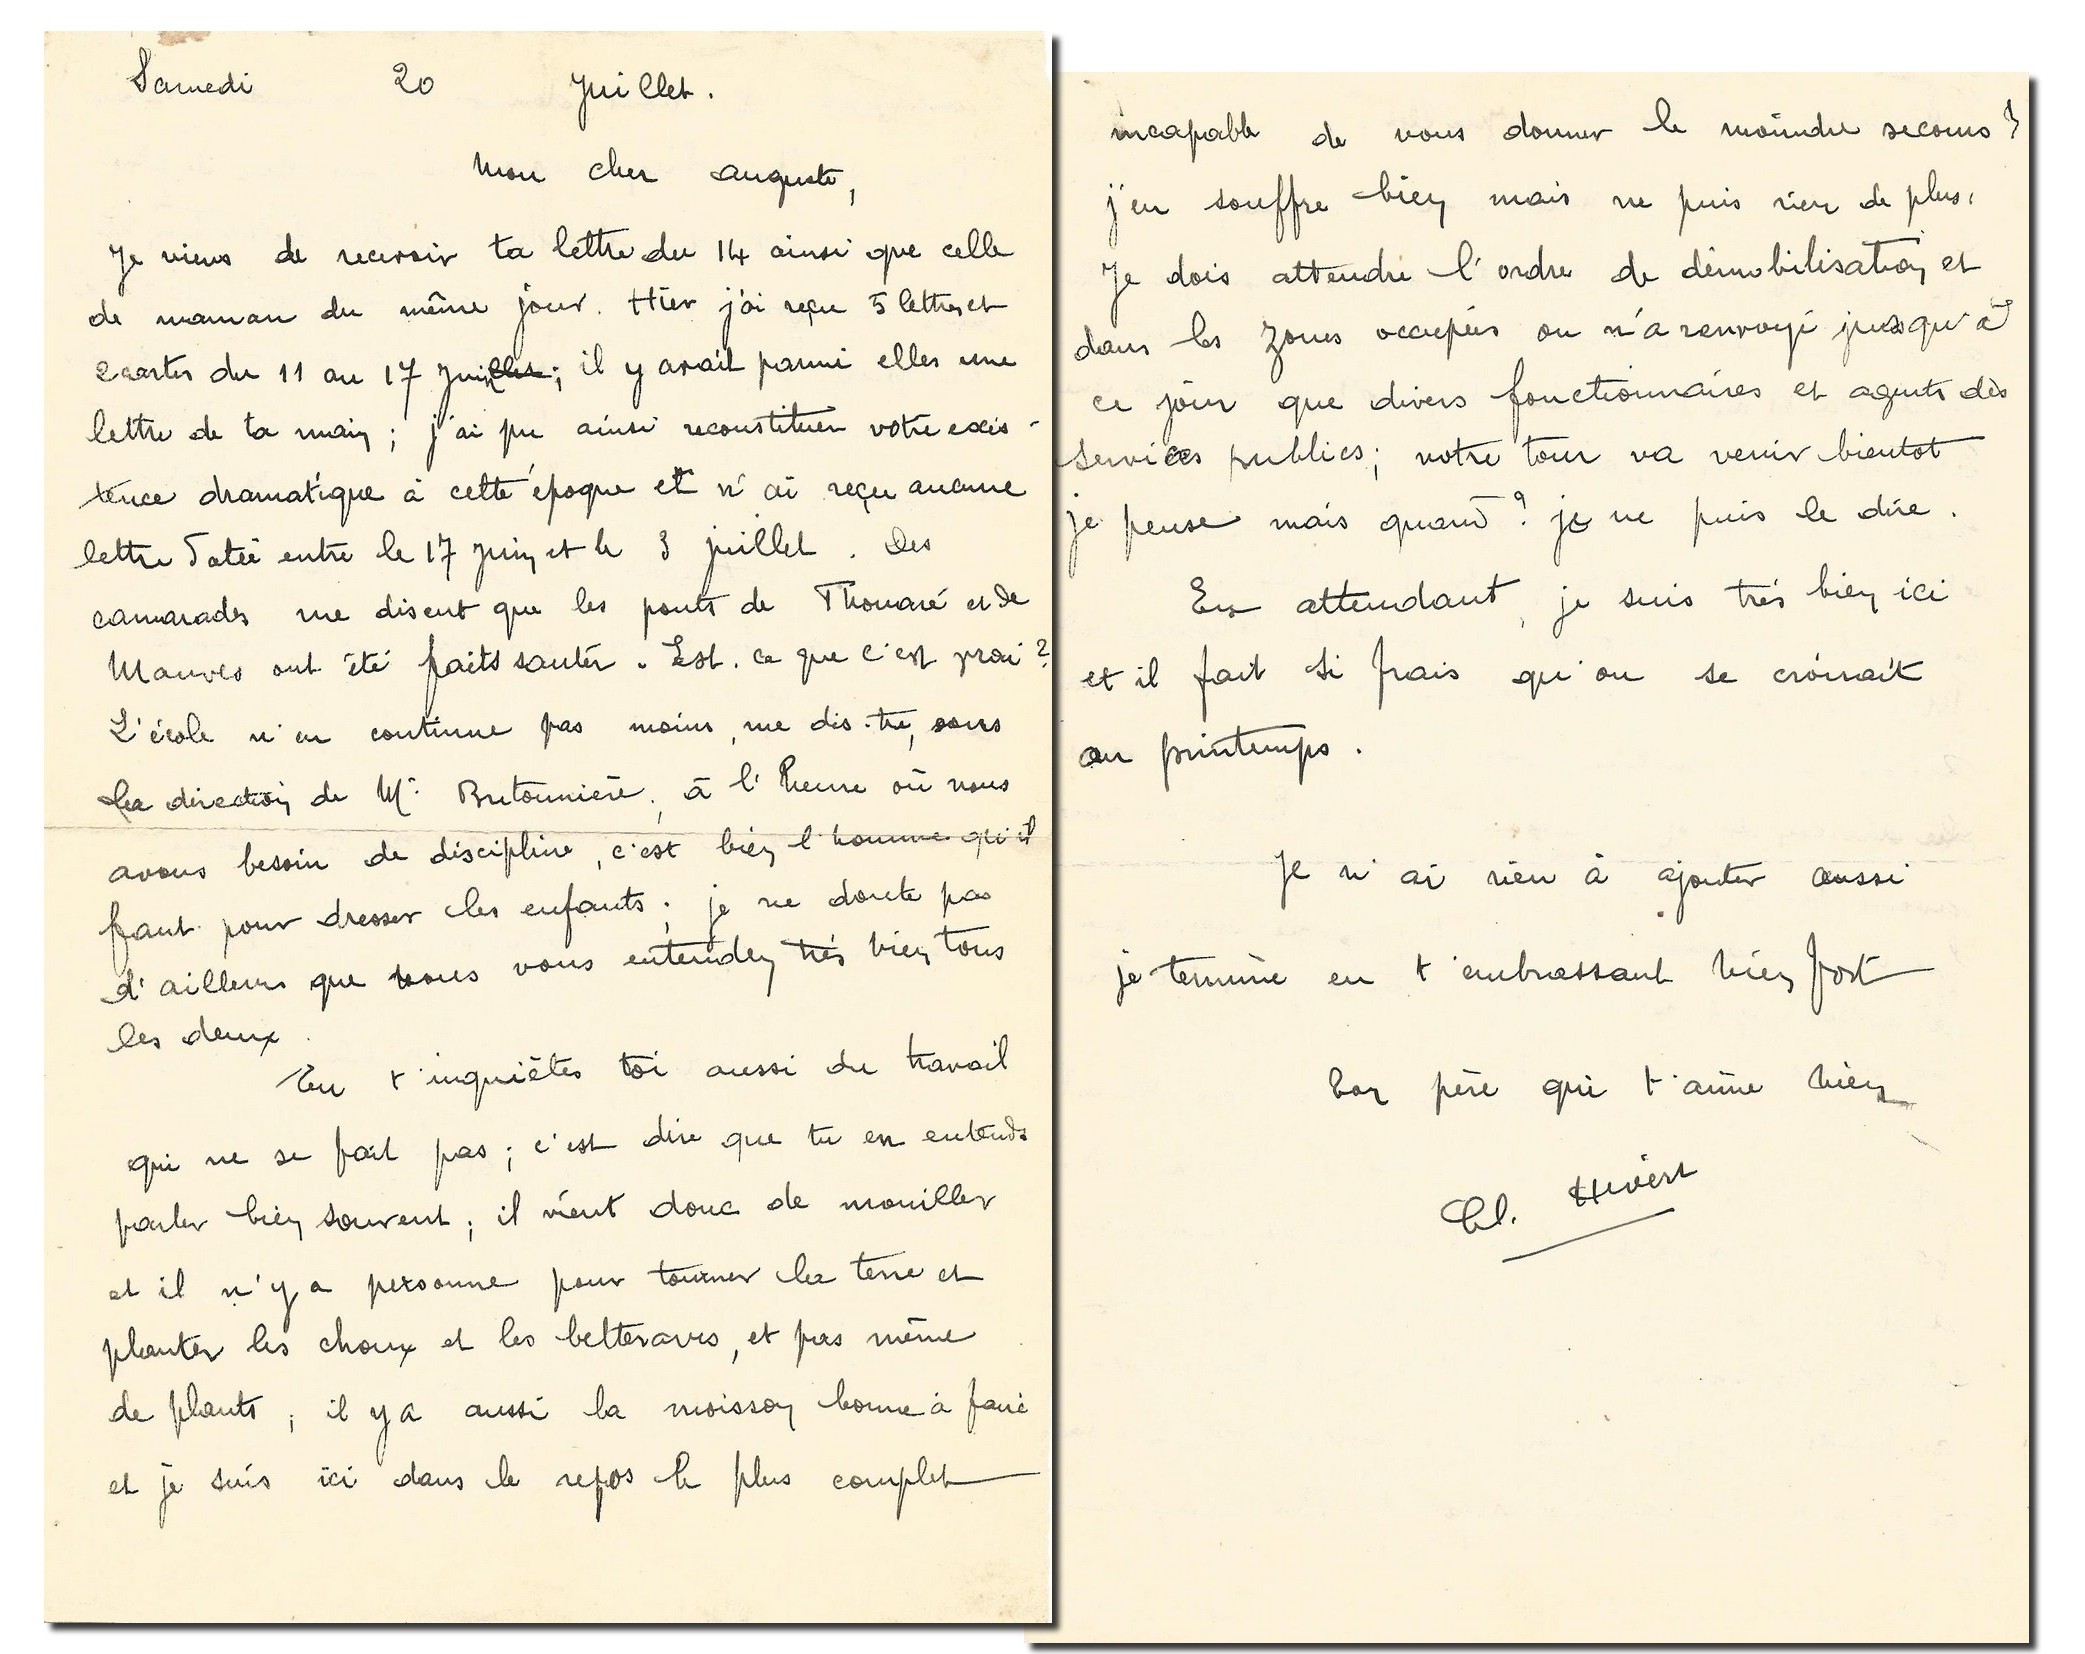 Samedi 20 Juillet.
Mon cher Auguste,
Je viens de recevoir ta lettre du 14 ainsi que celle
de maman du même jour. Hier j'ai reçu 5 lettres et
cartes du 11 au 17 Juin; il y avait parmi elles une
lettre de ta main; j'ai pu ainsi reconstituer votre exis-
tence dramatique à cette époque et n'ai reçu aucune
lettre datée entre le 17 Juin et le 3 juillet. Des
camarades me disent que les ponts de Thouaré et de
Mauves ont été faits sauter. Est-ce que c'est vrai?
L'école n'en continue pas moins, me dis-tu, sous
la direction de Mr Bretonnière, à l'heure où nous
avons besoin de discipline, c'est bien l'homme qu'il
faut pour dresser les enfants; je ne doute pas
d'ailleurs que vous vous entendez très bien tous
les deux.
Tu t'inquiètes toi aussi du travail
qui ne se fait pas; c'est dire que tu en entends
parler bien souvent; il vient donc de mouiller
et il n'y a personne pour tourner la terre et
planter les choux et les betteraves, et pas même
de plants; il y a aussi la moisson bonne à faire
et je suis ici dans le repos le plus complet
incapable de vous donner le moindre secours?
j'en souffre bien mais ne puis rien de plus.
Je dois attendre l'ordre de démobilisation et
dans les zones occupées on n'a renvoyé jusqu'à
ce jour que divers fonctionnaires et agents des
services publics; notre tour va venir bientot
je pense mais quand? je ne puis le dire.
En attendant, je suis très bien ici
et il fait si frais qu'on se croirait
au printemps.
Je n'ai rien à ajouter aussi
je termine en t'embrassant bien fort
Ton père qui t'aime bien
Cl. Hivert